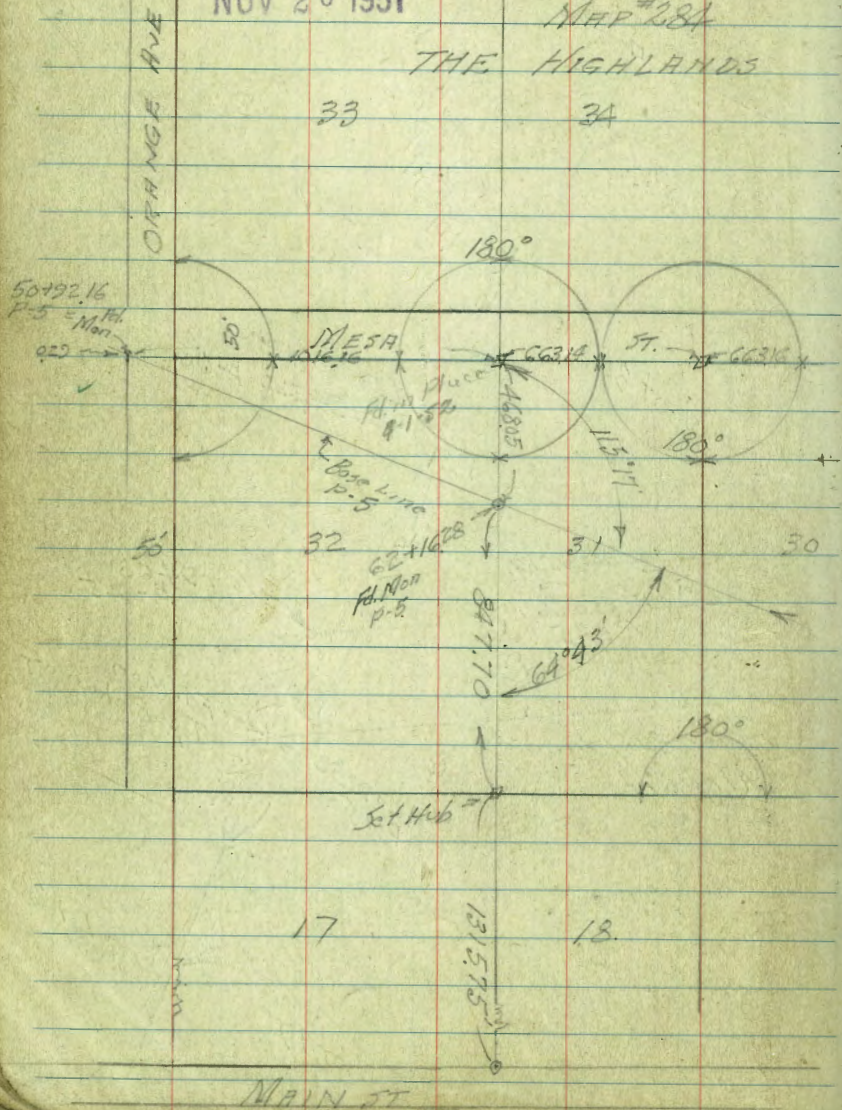 NOV 2 1951
MAP #284
THE HIGHLANDS
ORANGE AVE
33
34
180°
50+92.16
P-5 = Fd.
Mon
0.29
50'
MESA
1016.16
663.14
ST.
663.16
Fd. in place
9-1-52
468.05
115°17'
180°
Base Line
P-5
50'
32
31
30
62+16.28
Fd. Mon
P-5
847.70
64°43'
180°
Set Hub =
17
18
1315.75
MAIN ST